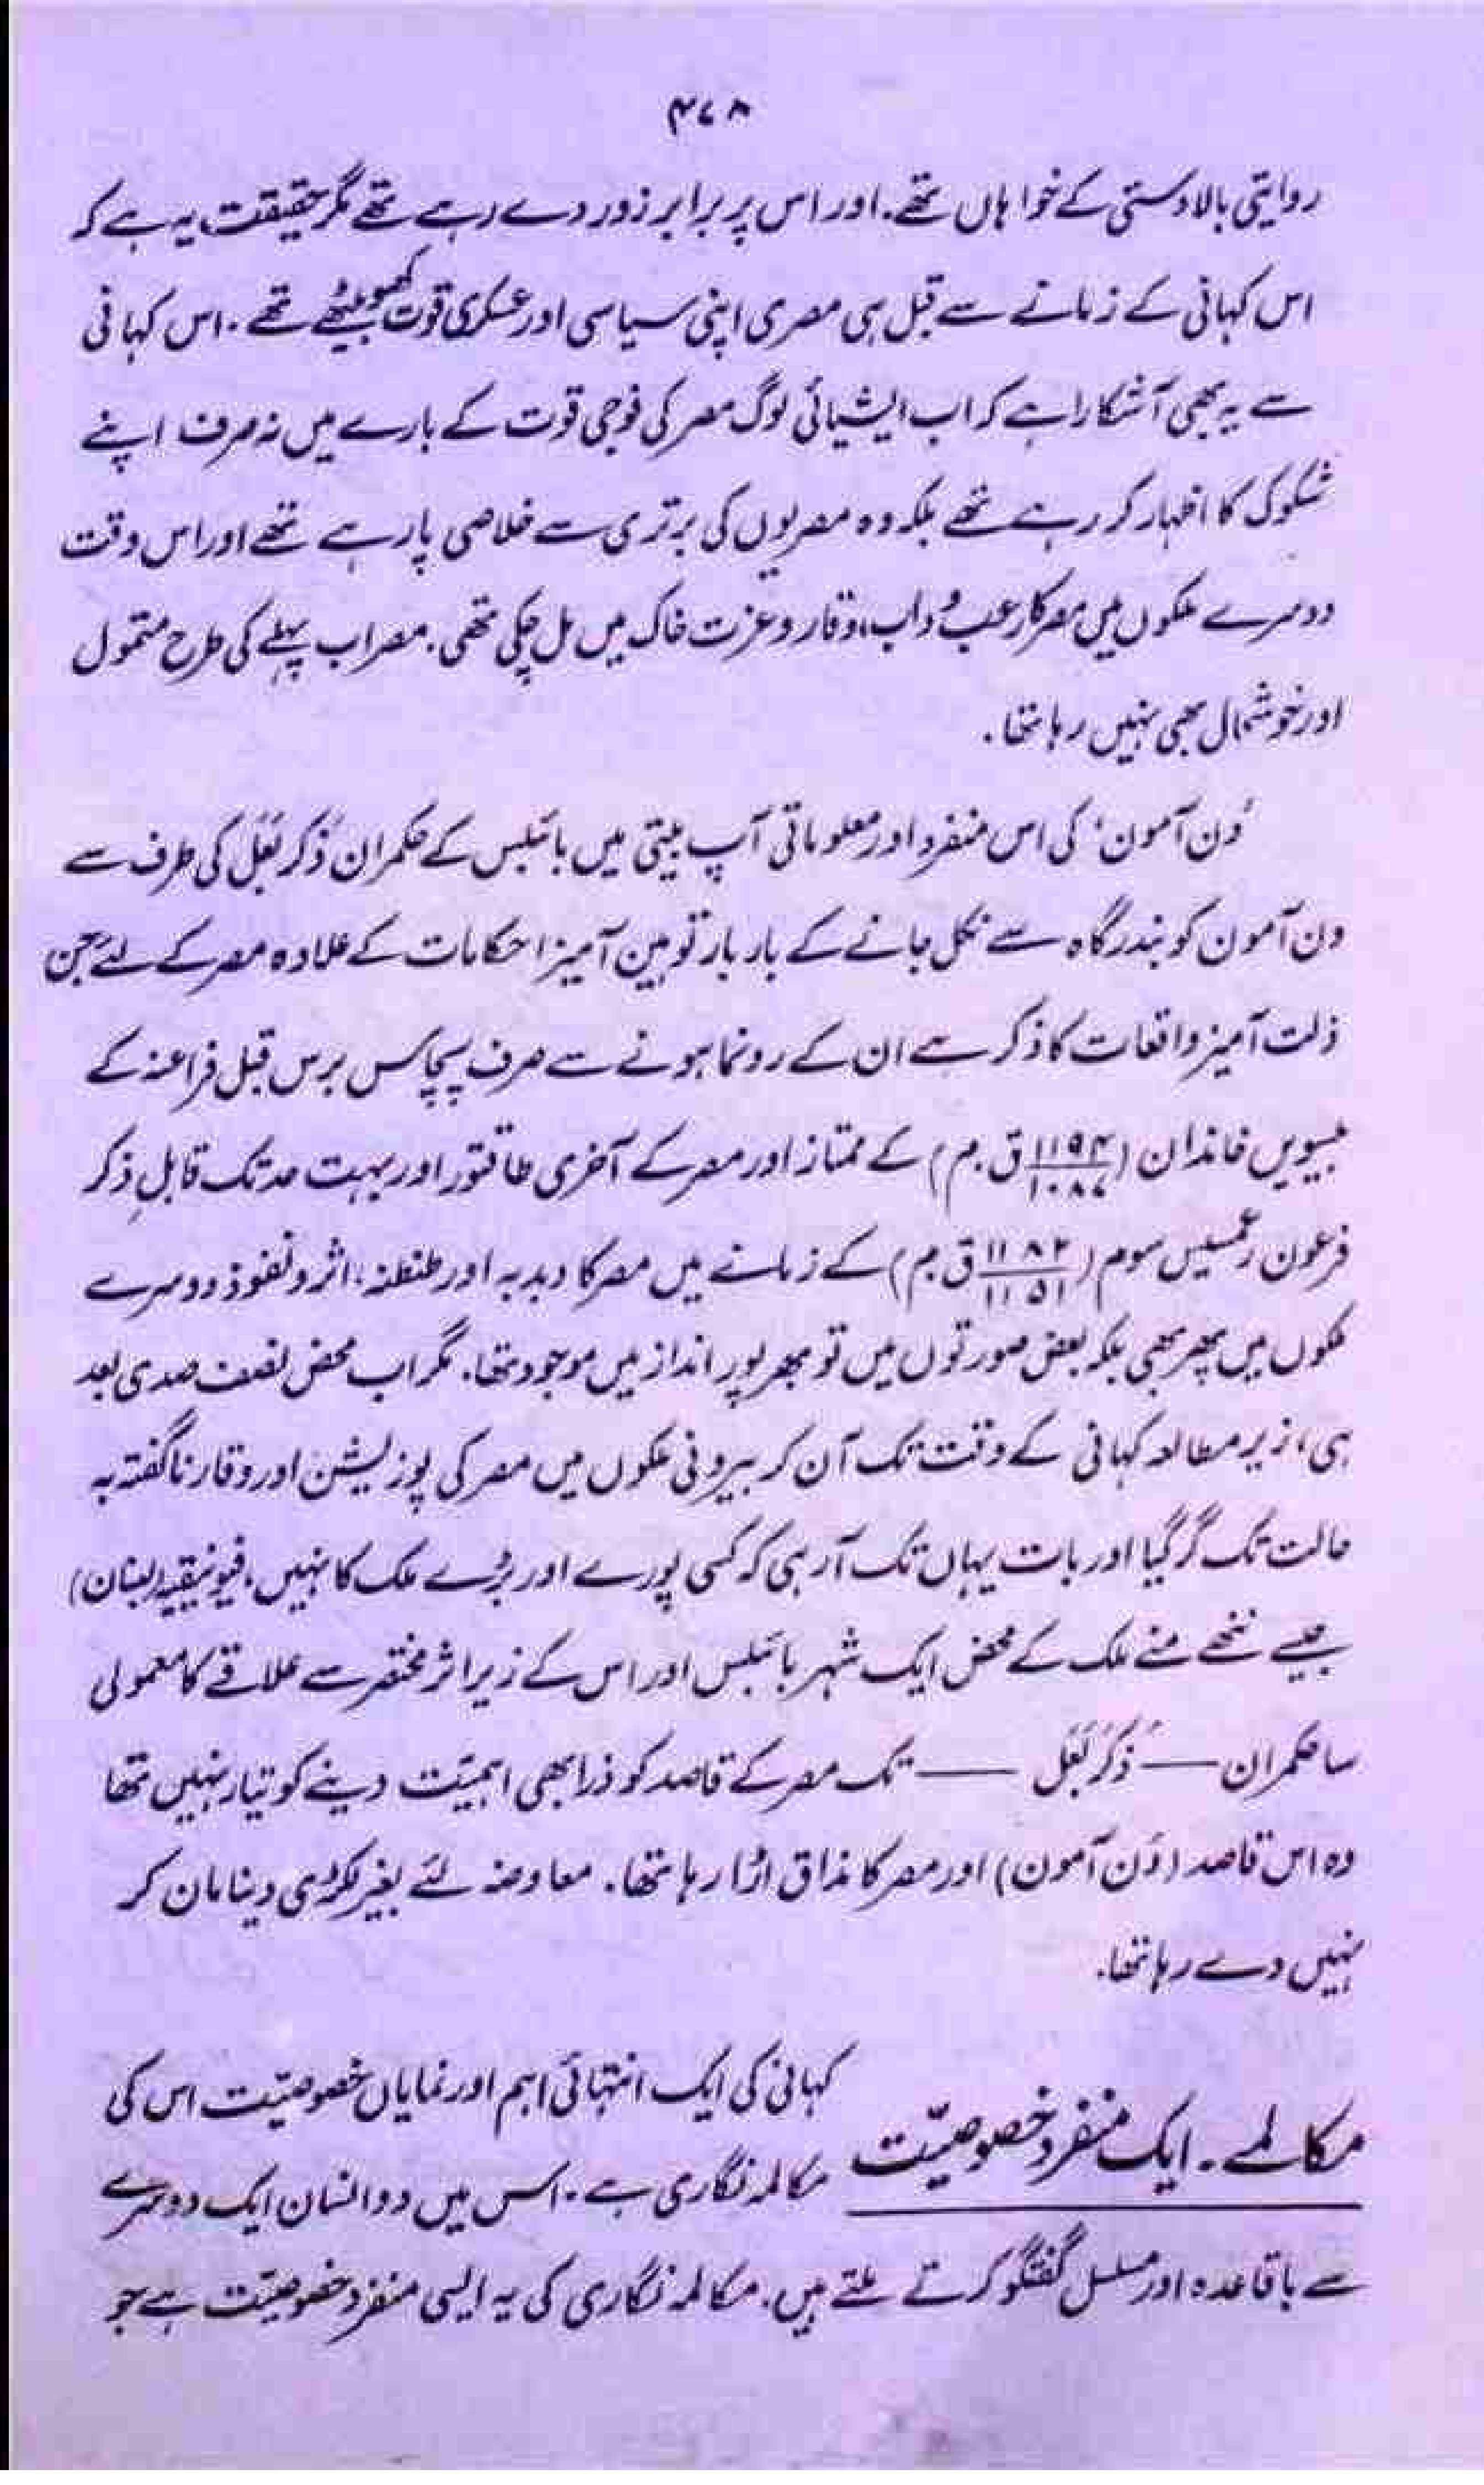 ۴۷۸
روایتی بالادستی کے خواہاں تھے۔ اور اس پر برابر زور دے رہے تھے مگر حقیقت یہ ہے کہ
اس کہانی کے زمانے سے قبل ہی مصری اپنی سیاسی اور عسکری قوت کھو بیٹھے تھے۔ اس کہانی
سے یہ بھی آشکارا ہے کہ اب ایشیائی لوگ مصر کی فوجی قوت کے بارے میں نہ صرف اپنے
شکوک کا اظہار کر رہے تھے بلکہ وہ مصریوں کی برتری سے خلاصی پا رہے تھے اور اس وقت
دوسرے ملکوں میں مصر کا رعب و داب، وقار و عزت خاک میں مل چکی تھی۔ مصر اب پہلے کی طرح متمول
اور خوشحال بھی نہیں رہا تھا۔
'وَن آمون' کی اس منفرد اور معلوماتی آپ بیتی میں بائبلس کے حکمران ذَکر بَعَل کی طرف سے
ون آمون کو بندرگاہ سے نکل جانے کے بار بار توہین آمیز احکامات کے علاوہ مصر کے لئے جن
ذلت آمیز واقعات کا ذکر ہے ان کے رونما ہونے سے صرف پچاس برس قبل فراعنہ کے
بیسویں خاندان (۱۱۹۴/۱۰۸۷ ق۔م) کے ممتاز اور مصر کے آخری طاقتور اور بہت حد تک قابلِ ذکر
فرعون رعمسیس سوم (۱۱۸۲/۱۱۵۱ ق م) کے زمانے میں مصر کا دبدبہ اور طنطنہ، اثر و نفوذ دوسرے
ملکوں میں پھر بھی بلکہ بعض صورتوں میں تو بھرپور انداز میں موجود تھا۔ مگر اب محض نصف صدی بعد
ہی، زیر مطالعہ کہانی کے وقت تک آن کر بیرونی ملکوں میں مصر کی پوزیشن اور وقار ناگفتہ بہ
حالت تک گر گیا اور بات یہاں تک آ رہی کہ کسی پورے اور بڑے ملک کا نہیں، فیونیقیہ (لبنان)
جیسے ننھے منے ملک کے محض ایک شہر بائبلس اور اس کے زیر اثر مختصر سے علاقے کا معمولی
سا حکمران —— ذَکَر بَعَل —— تک مصر کے قاصد کو ذرا بھی اہمیّت دینے کو تیار نہیں تھا
وہ اس قاصد (وَن آمون) اور مصر کا مذاق اڑا رہا تھا۔ معاوضہ لئے بغیر لکڑی دینا مان کر
نہیں دے رہا تھا۔
مکالمے۔ ایک منفرد خصوصیّت
کہانی کی ایک انتہائی اہم اور نمایاں خصوصیّت اس کی
مکالمہ نگاری ہے۔ اس میں دو انسان ایک دوسرے
سے باقاعدہ اور مسلسل گفتگو کرتے ملتے ہیں۔ مکالمہ نگاری کی یہ ایسی منفرد خصوصیّت ہے جو